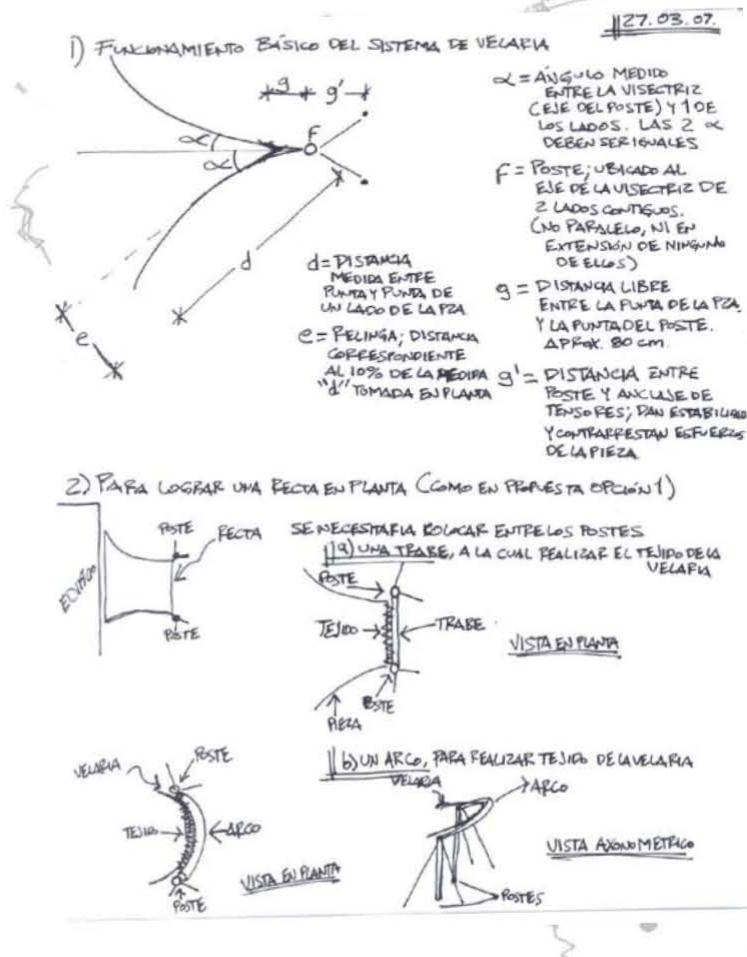 27.03.07.
1) FUNCIONAMIENTO BÁSICO DEL SISTEMA DE VELARIA
g
g'
F
α
α
d
e
α = ÁNGULO MEDIDO
ENTRE LA VISECTRIZ
(EJE DEL POSTE) Y 1 DE
LOS LADOS. LAS 2 α
DEBEN SER IGUALES
F = POSTE; UBICADO AL
EJE DE LA VISECTRIZ DE
2 LADOS CONTIGUOS.
(NO PARALELO, NI EN
EXTENSIÓN DE NINGUNO
DE ELLOS)
d = DISTANCIA
MEDIDA ENTRE
PUNTA Y PUNTA DE
UN LADO DE LA PZA
e = RELINGA; DISTANCIA
CORRESPONDIENTE
AL 10% DE LA MEDIDA
"d" TOMADA EN PLANTA
g = DISTANCIA LIBRE
ENTRE LA PUNTA DE LA PZA.
Y LA PUNTA DEL POSTE.
APROX. 80 cm.
g' = DISTANCIA ENTRE
POSTE Y ANCLAJE DE
TENSORES; DAN ESTABILIDAD
Y CONTRARRESTAN ESFUERZOS
DE LA PIEZA
2) PARA LOGRAR UNA RECTA EN PLANTA (COMO EN PROPUESTA OPCIÓN 1)
EDIFICIO
POSTE
RECTA
POSTE
SE NECESITARIA COLOCAR ENTRE LOS POSTES
a) UNA TRABE, A LA CUAL REALIZAR EL TEJIDO DE LA
VELARIA
POSTE
TEJIDO
TRABE
POSTE
PIEZA
VISTA EN PLANTA
VELARIA
POSTE
TEJIDO
ARCO
POSTE
VISTA EN PLANTA
b) UN ARCO, PARA REALIZAR TEJIDO DE LA VELARIA
VELARIA
ARCO
POSTES
VISTA AXONOMETRICO